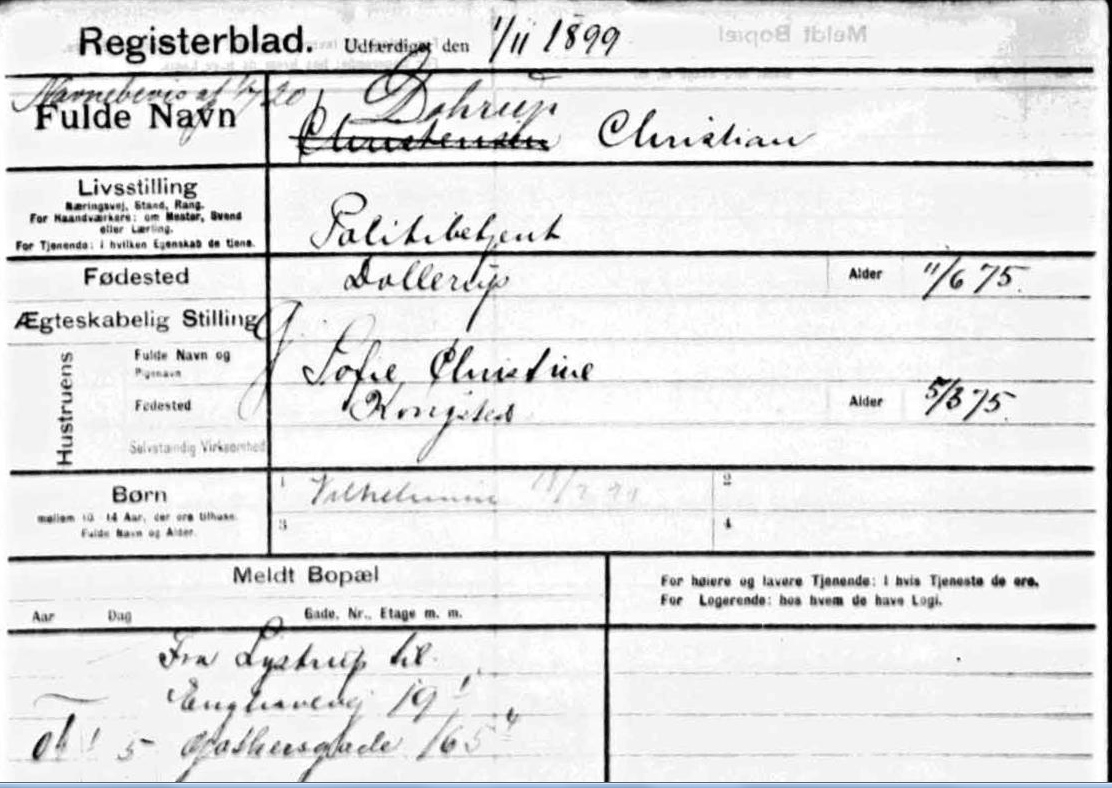 Registerblad. Udfærdiget den 1/11 1899
Meldt Bopæl
Navnebevis af 20
Fulde Navn
Dohrup
Christensen Christian
Livsstilling
Næringsvej, Stand, Rang.
For Haandværkere: om Mester, Svend
eller Lærling.
For Tjenende: i hvilken Egenskab de tjene.
Politibetjent
Fødested Dollerup Alder 11/6 75.
Ægteskabelig Stilling G.
Hustruens
Fulde Navn og
Pigenavn
Sofie, Christine
Fødested Kongsted Alder 5/3 75.
Selvstændig Virksomhed
Børn
mellem 10-14 Aar, der ere tilhuse.
Fulde Navn og Alder.
1 Vilhelmine 2
3 4
Meldt Bopæl
Aar Dag Gade, Nr., Etage m. m.
For høiere og lavere Tjenende: i hvis Tjeneste de ere.
For Logerende: hos hvem de have Logi.
Fra Lystrup til
Enghavevej 19
5 Gothersgade 165